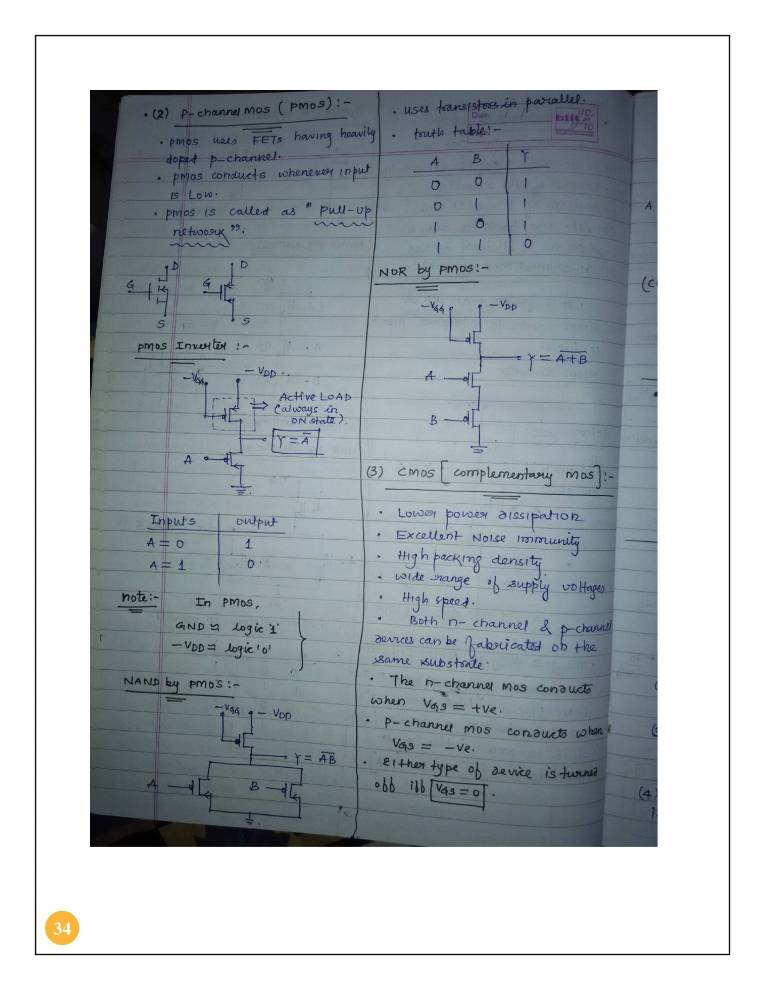 • (2) P-channel MOS (PMOS) :-
• pmos uses FETs having heavily
doped p-channel.
• pmos conducts whenever input
is Low.
• pmos is called as " Pull-up
network ".
D
G
S
D
G
S
pmos Inverter :-
-VGG
- VDD
Active LOAD
(always in
ON state)
Y = A̅
A
Inputs output
A = 0 1
A = 1 0
note:- In pmos,
GND ≈ logic '1'
-VDD ≈ logic '0'
NAND by pmos :-
-VGG
- VDD
Y = A̅B̅
A
B
• uses transistors in parallel.
Date
• truth table :-
A B Y
0 0 1
0 1 1
1 0 1
1 1 0
NOR by pmos :-
-VGG
- VDD
Y = A̅+̅B̅
A
B
(3) CMOS [complementary MOS] :-
• Lower power dissipation
• Excellent Noise immunity
• High packing density.
• wide range of supply voltages
• High speed.
• Both n-channel & p-channel
devices can be fabricated on the
same substrate.
• The n-channel mos conducts
when VGS = +ve.
• P-channel mos conducts when
VGS = -ve.
• either type of device is turned
off iff VGS = 0 .
A
(4)
34